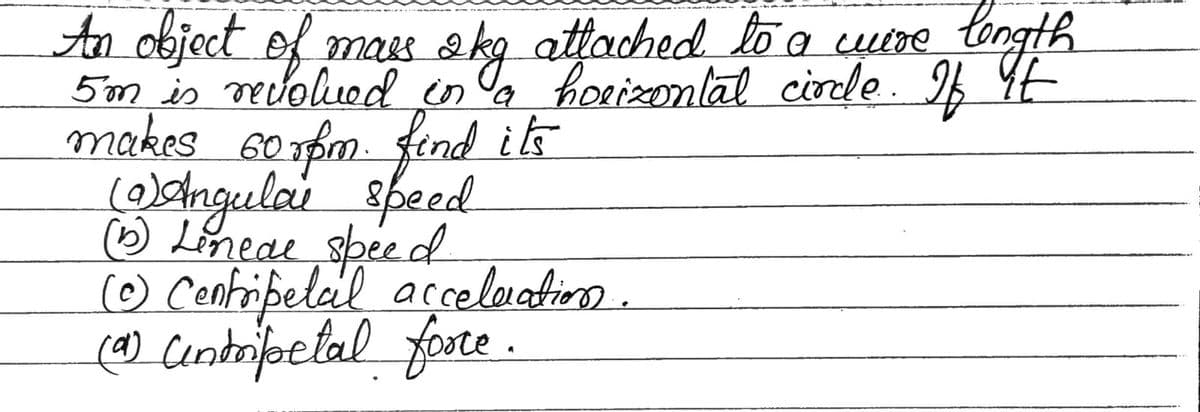 An object of mass 2kg attached to a wire length
5m is revolved in a horizontal circle. If it
makes 60 rpm. find its
(a) Angular speed
(b) Linear speed
(c) Centripetal acceleration.
(d) Centripetal force.